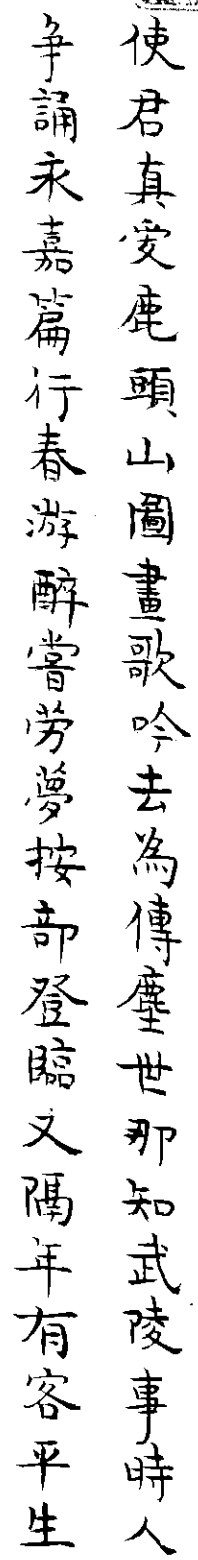 使君真愛鹿頭山圖畫歌吟去為傳塵世那知武陵事時人
爭誦永嘉篇行春游醉嘗勞夢按部登臨又隔年有客平生